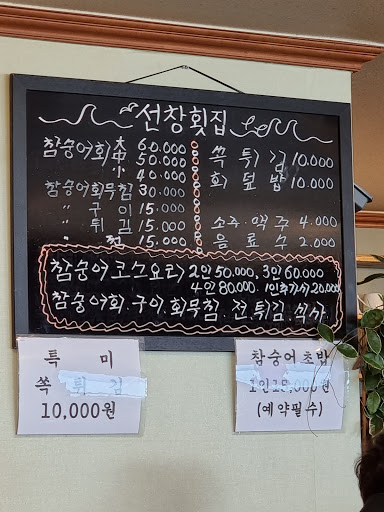 선창횟집
참숭어회 大 60.000
中 50.000
小 40.000
참숭어회무침 30.000
〃 구이 15.000
〃 튀김 15.000
〃 전 15.000
쑥튀김 10.000
회덮밥 10.000
소주·맥주 4.000
음료수 2.000
참숭어코스요리 2인 50.000, 3인 60.000
4인 80.000. 1인추가시 20.000
참숭어회.구이.회무침.전.튀김.식사.
특 미
쑥 튀 김
10,000원
참숭어초밥
(예약필수)